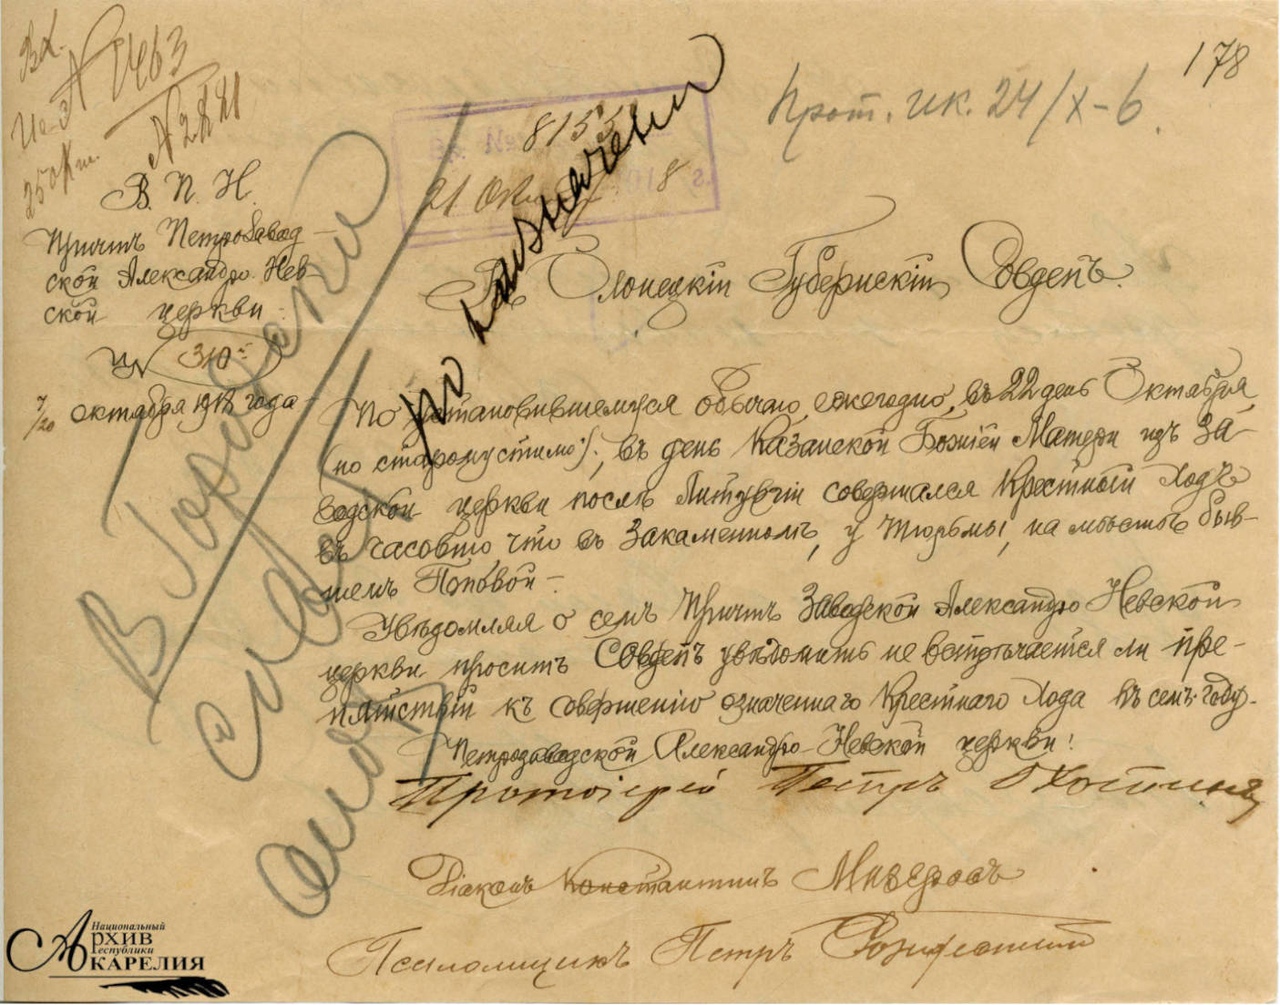 Вх.
№ 1463
178
Прот. ик. 24/X-6.
8155
21 Окт 8
по назначению
В. П. Н.
Причтъ Петрозавод-
ской Александро-Нев-
ской церкви.
№ 310
7/20 октября 1918 года
Въ Олонецкій Губернскій Совдепъ.
По установившемуся обычаю, ежегодно, въ 22 день Октября,
(по старому стилю), въ день Казанской Божіей Матери изъ За-
водской церкви послѣ Литургіи совершался Крестный Ходъ
въ часовню что въ Закаменномъ, у Тюрьмы, на мѣстѣ быв-
шемъ Поповой –
Увѣдомляя о семъ Причтъ Заводской Александро Невской
церкви проситъ Совдепъ увѣдомить не встрѣчается ли пре-
пятствій къ совершенію означеннаго Крестнаго Хода въ семъ году.
Петрозаводской Александро-Невской церкви:
Протоіерей Петръ
Діаконъ Константинъ
Псаломщикъ Петръ
В Городской
Совдеп
Национальный
Архив
Республики
Карелия